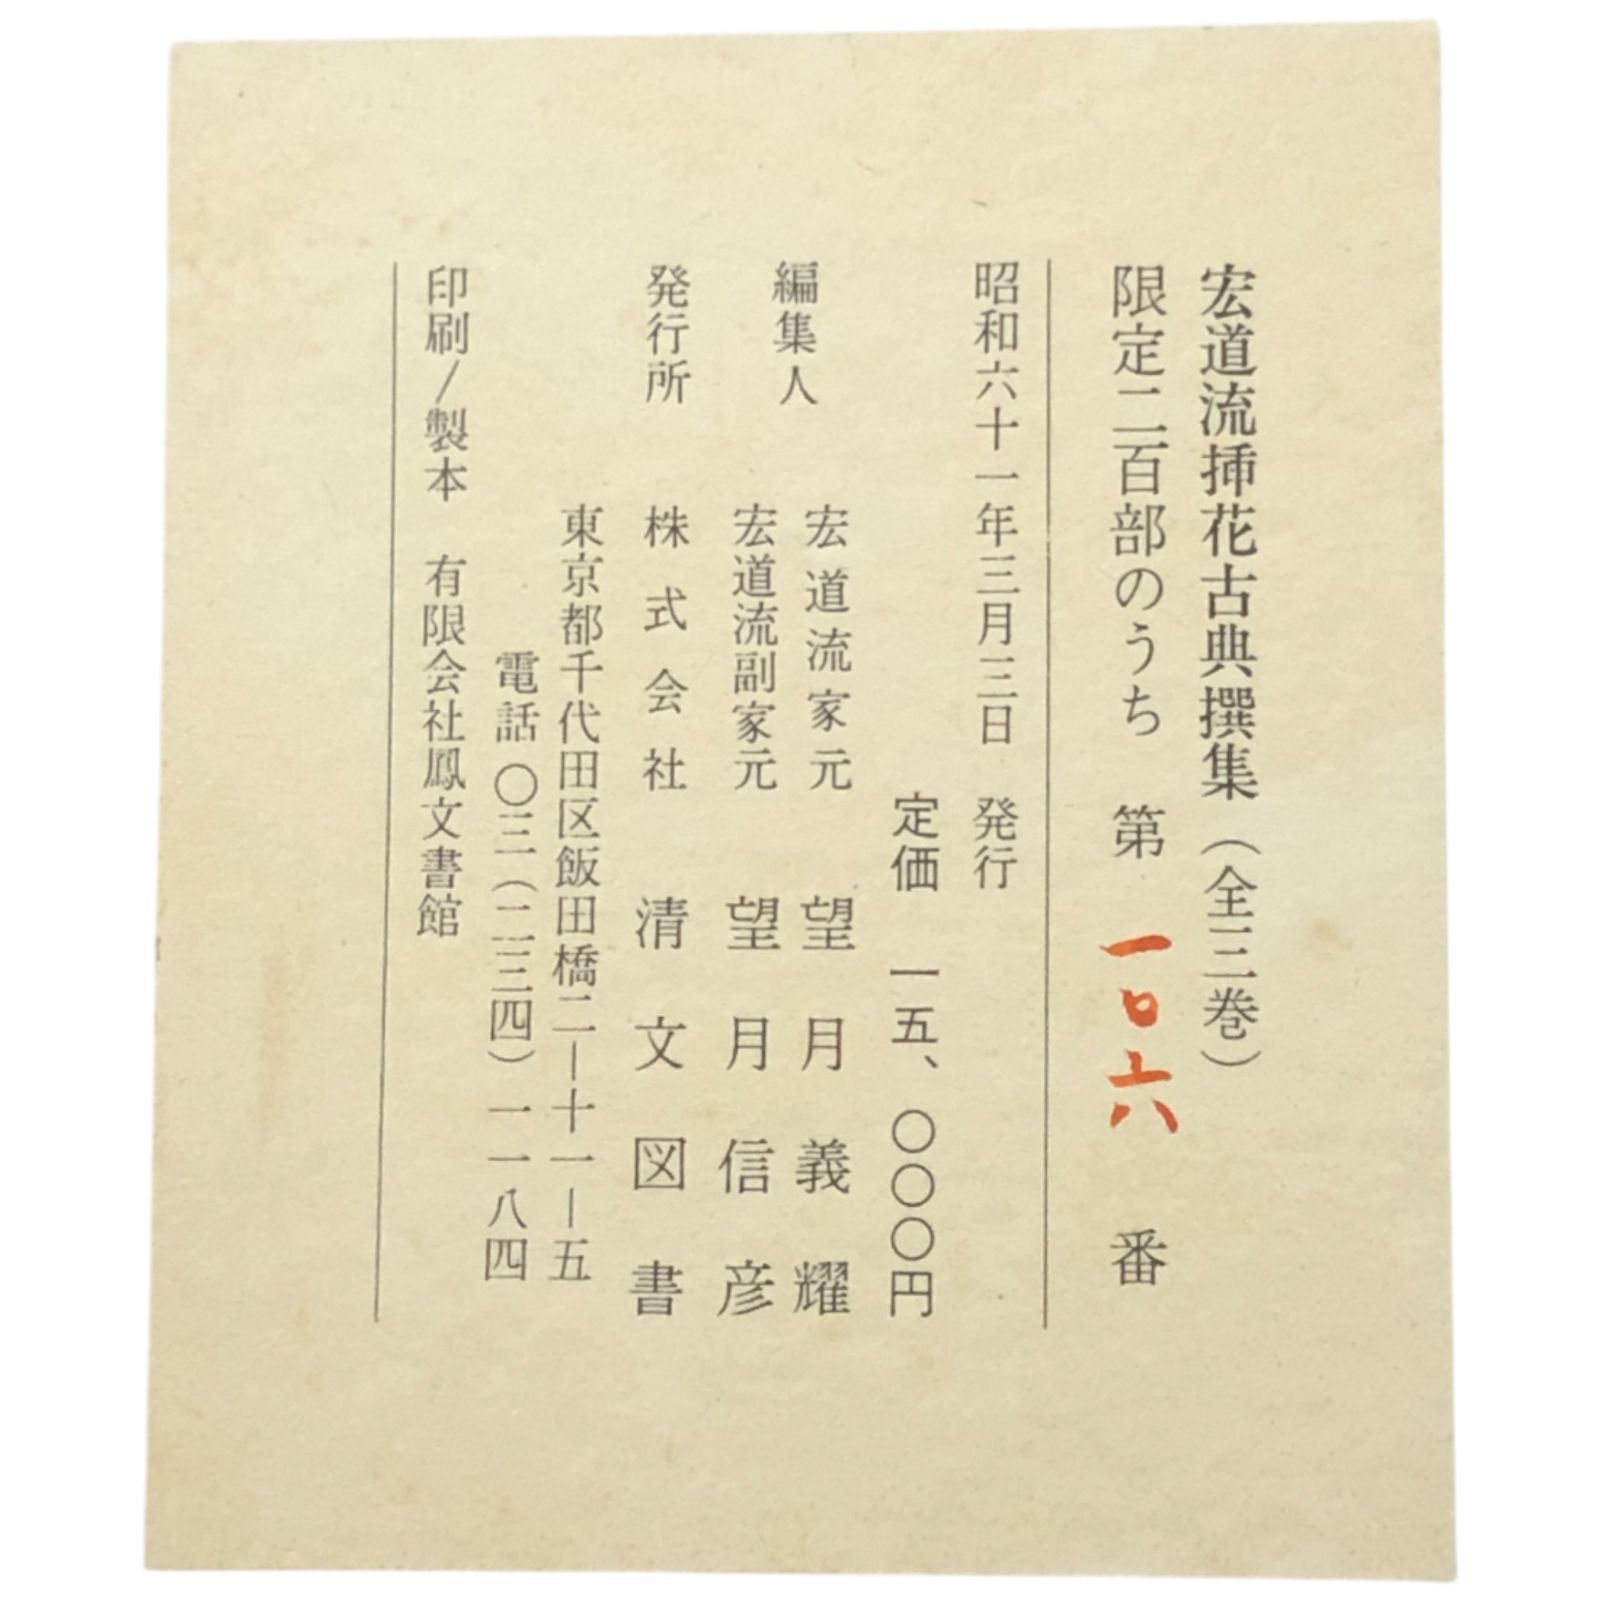 宏道流挿花古典撰集（全三巻）
限定二百部のうち　第　一〇六　番
昭和六十一年三月三日　発行
定価　一五、〇〇〇円
編集人　宏道流家元　望月義耀
宏道流副家元　望月信彦
発行所　株式会社　清文図書
東京都千代田区飯田橋二―十一―五
電話　〇三（二三四）一一八四
印刷/製本　有限会社鳳文書館